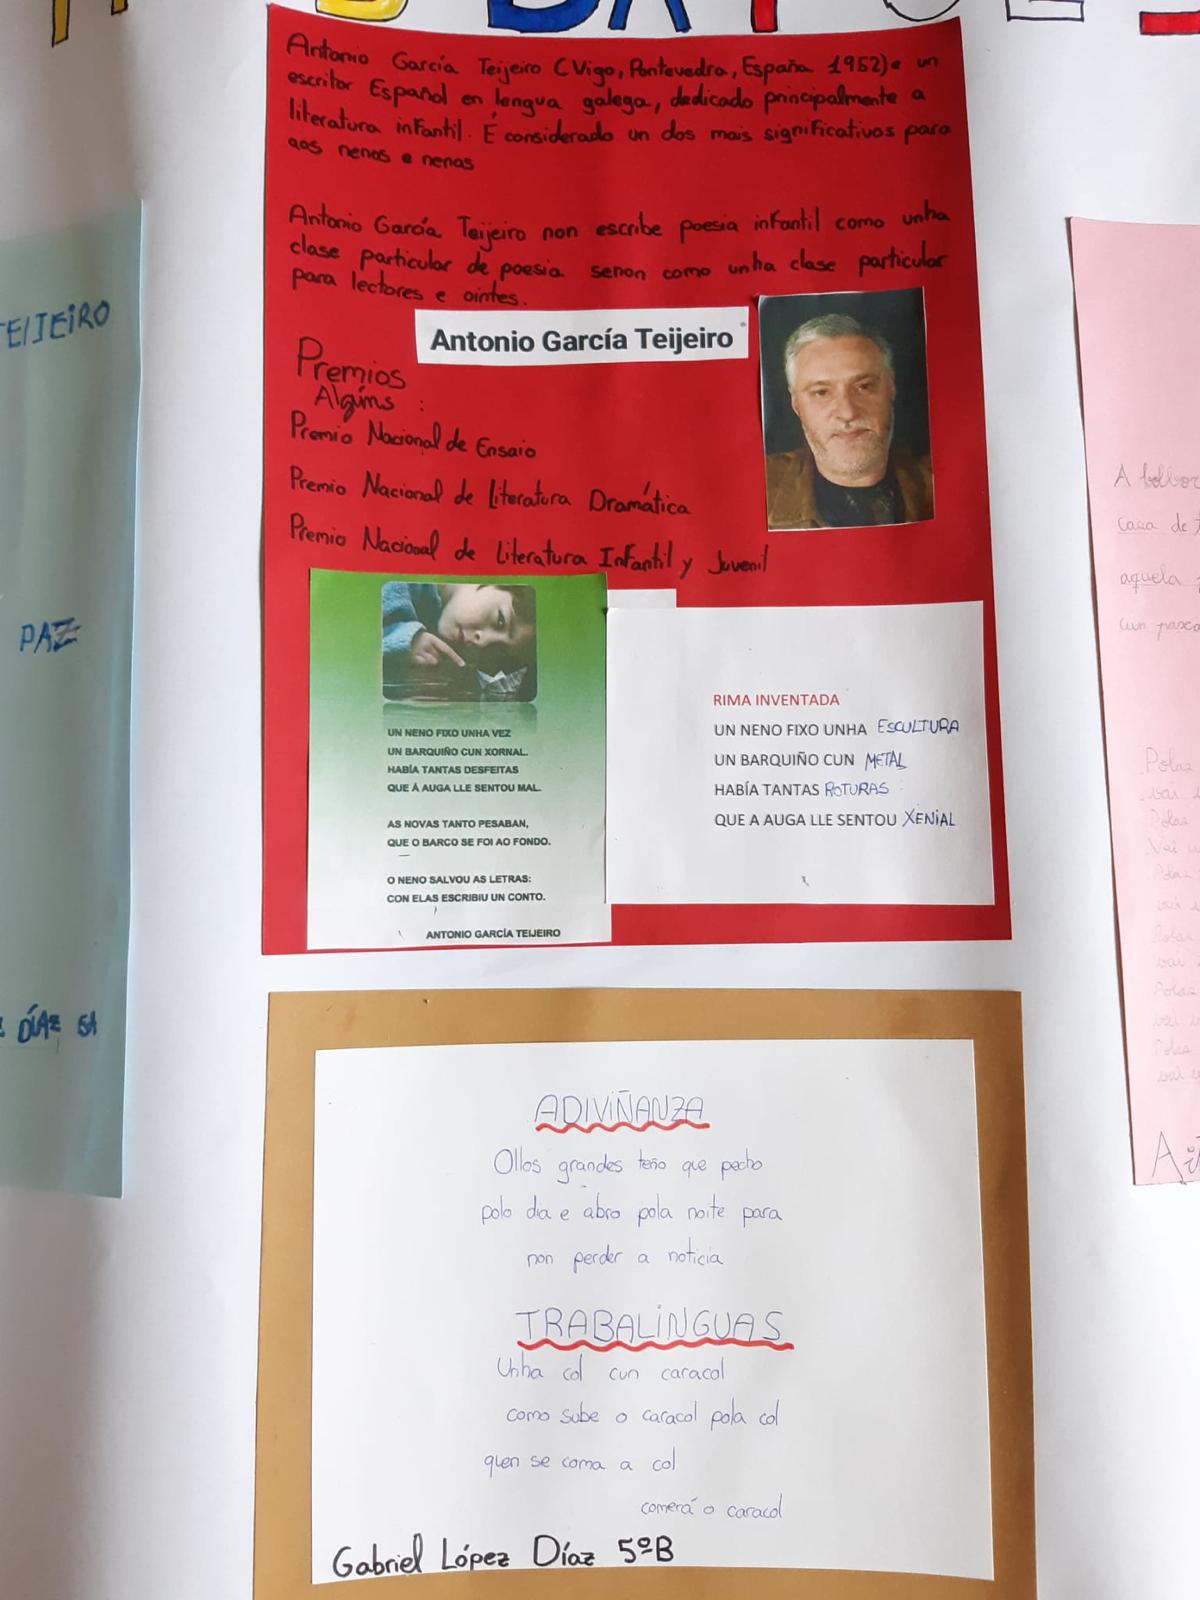 Antonio García Teijeiro (Vigo, Pontevedra, España 1952) e un
escritor Español en lengua galega, dedicado principalmente a
literatura infantil. É considerado un dos mais significativos para
aos nenos e nenas
Antonio García Teijeiro non escribe poesia infantil como unha
clase particular de poesia senon como unha clase particular
para lectores e ointes.
Antonio García Teijeiro
Premios
Algúns :
Premio Nacional de Ensaio
Premio Nacional de Literatura Dramática
Premio Nacional de Literatura Infantil y Juvenil
UN NENO FIXO UNHA VEZ
UN BARQUIÑO CUN XORNAL.
HABÍA TANTAS DESFEITAS
QUE Á AUGA LLE SENTOU MAL.
AS NOVAS TANTO PESABAN,
QUE O BARCO SE FOI AO FONDO.
O NENO SALVOU AS LETRAS:
CON ELAS ESCRIBIU UN CONTO.
ANTONIO GARCÍA TEIJEIRO
RIMA INVENTADA
UN NENO FIXO UNHA ESCULTURA
UN BARQUIÑO CUN METAL
HABÍA TANTAS ROTURAS
QUE A AUGA LLE SENTOU XENIAL
ADIVIÑANZA
Ollos grandes teño que pecho
polo dia e abro pola noite para
non perder a noticia
TRABALINGUAS
Unha col cun caracol
como sube o caracol pola col
quen se coma a col
comerá o caracol
Gabriel López Díaz 5ºB
TEIJEIRO
PAZ
DÍAZ 5A
A
casa de
aquela
cun
Polas
vai
Polas
Vai
Polas
vai
Polas
vai
Polas
vai
Polas
vai